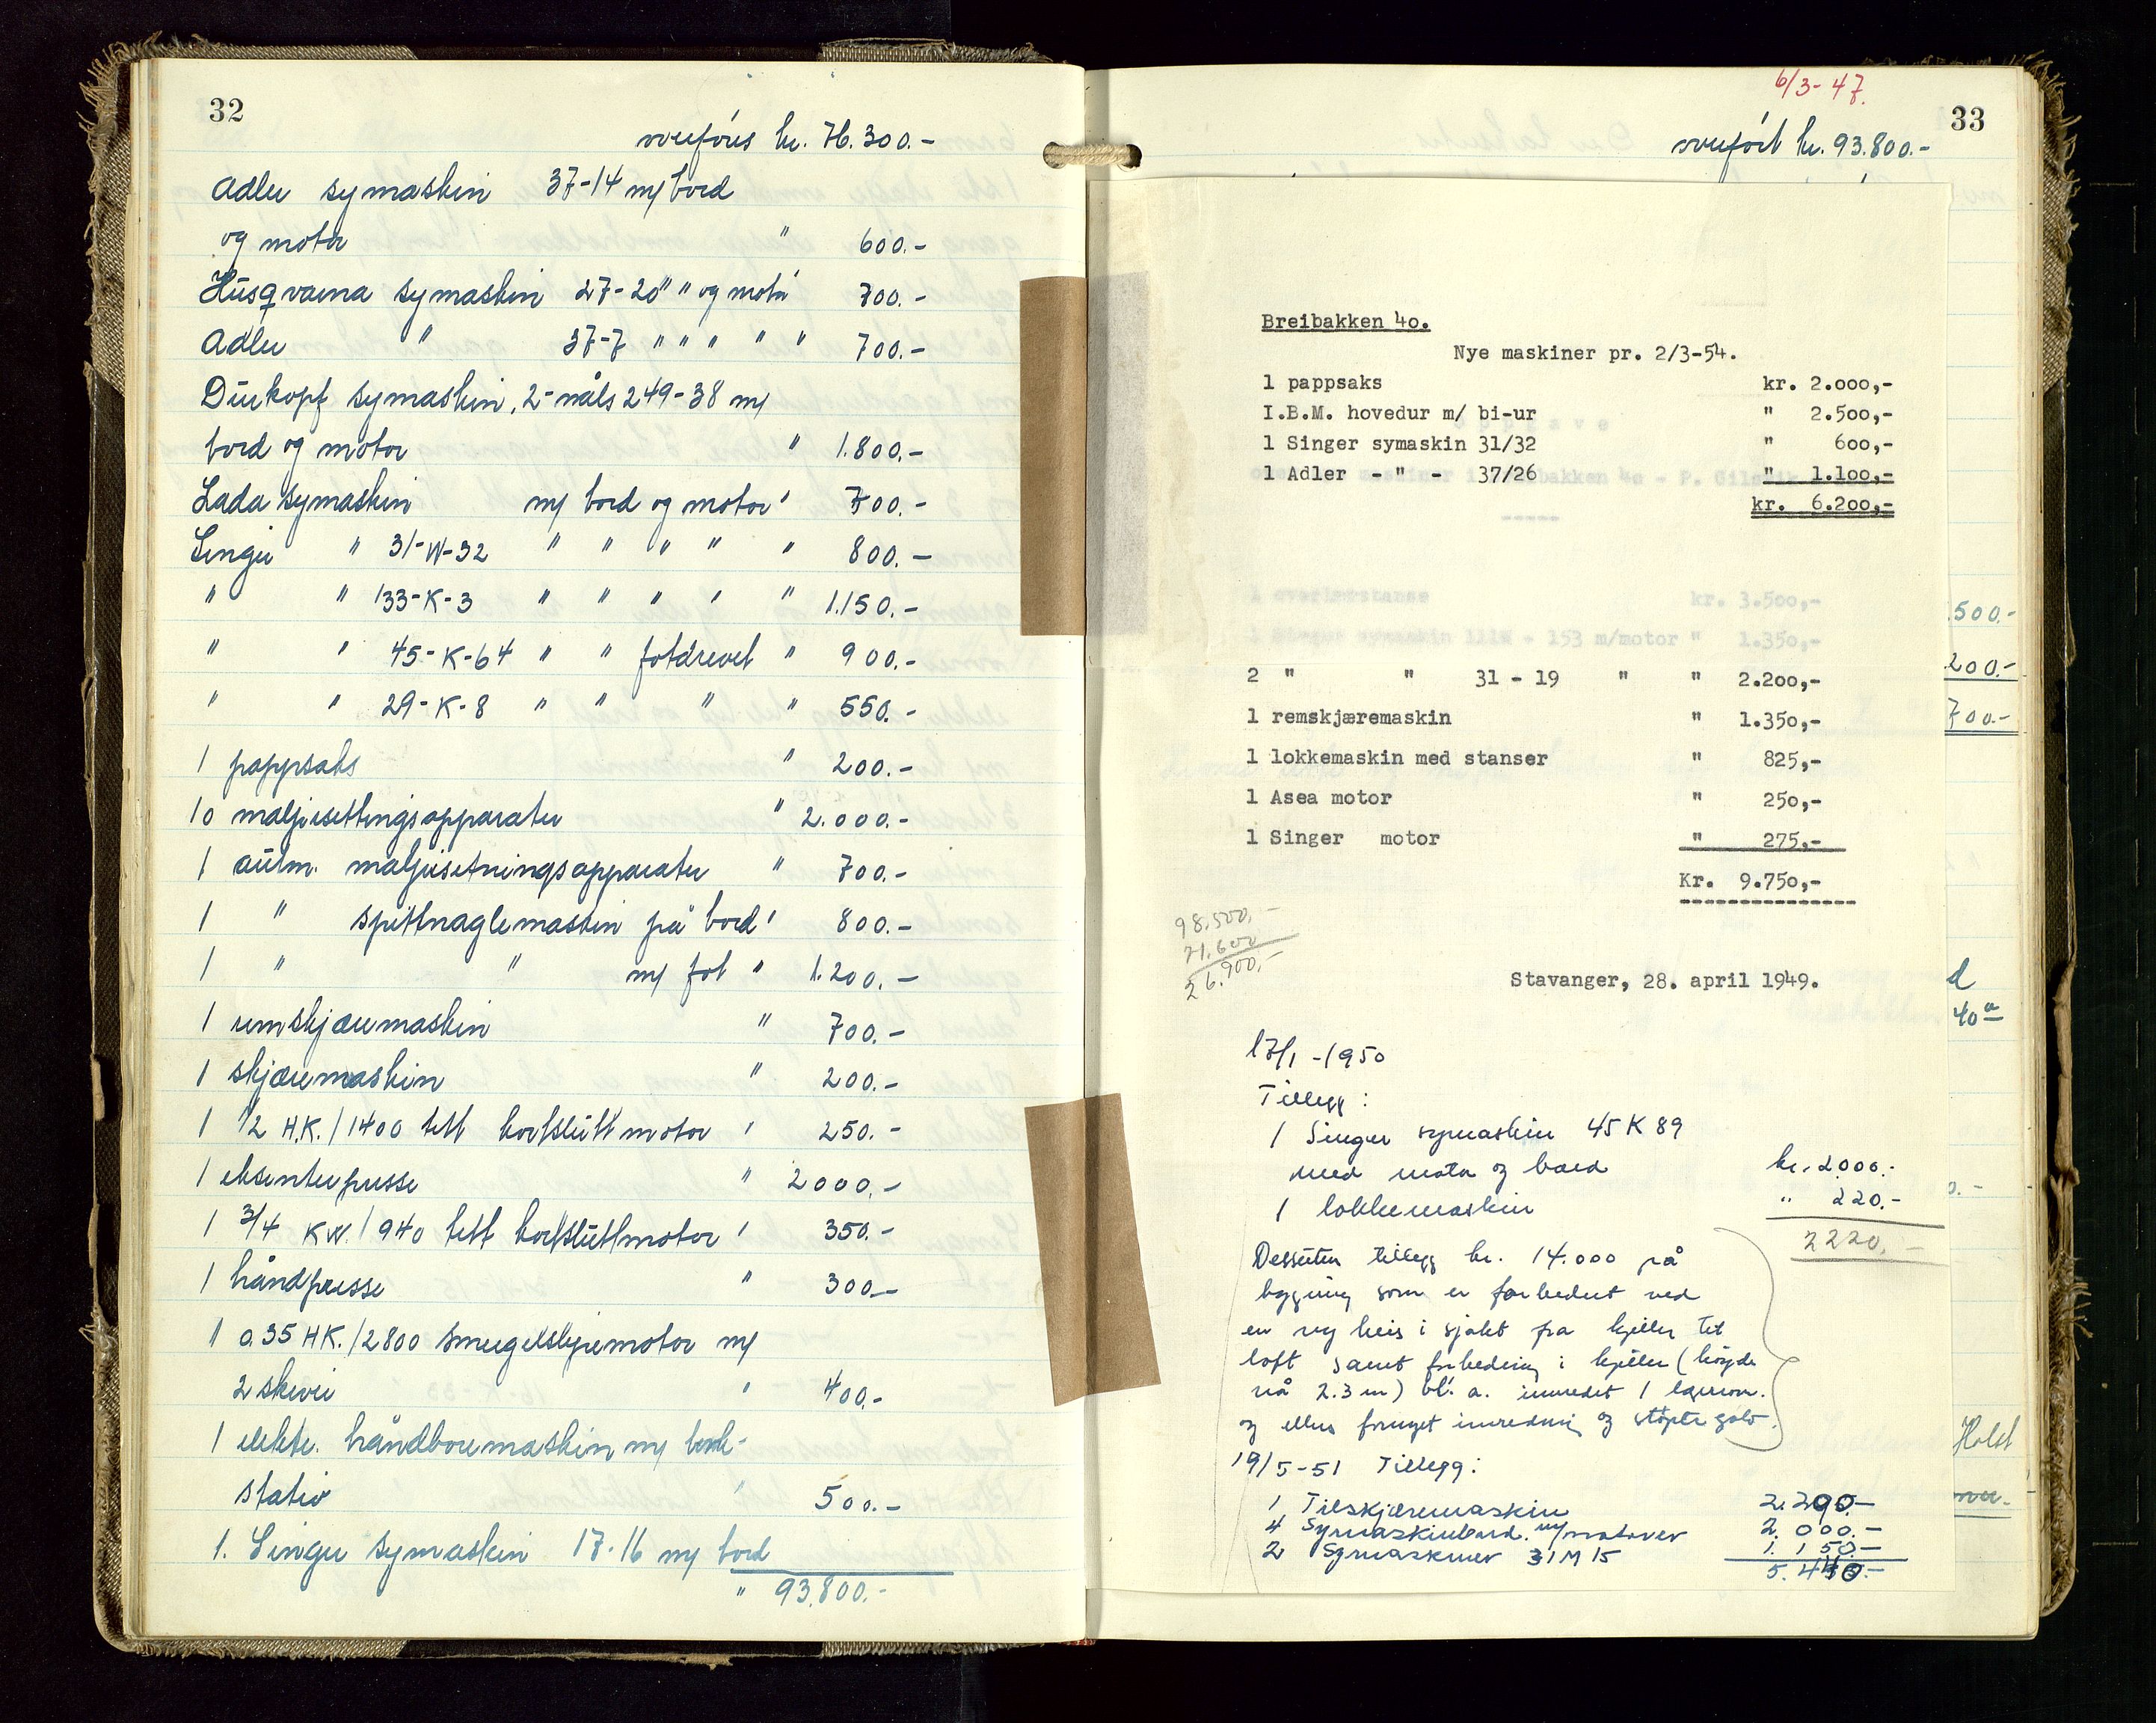 32
overføres kr. 76.300.-
Adler symaskin 37-14 m/ bord
og motor " 600.-
Husqvarna symaskin 27-20 " " og motor 700.-
Adler " 37-7 " " " " " 700.-
Dürkopf symaskin, 2-nåls 249-38 m/
bord og motor " 1.800.-
Lada symaskin m/ bord og motor " 700.-
Singer " 31-W-32 " " " " " 800.-
" " 133-K-3 " " " " " 1.150.-
" " 45-K-64 " " fotdrevet " 900.-
" " 29-K-8 " " " " 550.-
1 pappsaks " 200.-
10 maljesettingsapparater " 2.000.-
1 autm. maljesetningsapparater " 700.-
1 " splittnaglemaskin på bord " 800.-
1 " " m/ fot " 1.200.-
1 remskjæremaskin " 700.-
1 skjæremaskin " 200.-
1 1/2 H.K./1400 tett kortsluttmotor " 250.-
1 eksenterpresse " 2000.-
1 3/4 KW./940 tett kortsluttmotor " 350.-
1 håndpresse " 300.-
1 0.35 HK./2800 smergelslipemotor m/
2 skiver " 400.-
1 elektr. håndboremaskin m/ benk-
stativ " 500.-
1. Singer symaskin 17-16 m/ bord
" 93.800.-
6/3-47.
33
overført kr. 93.800.-
Breibakken 4o.
Nye maskiner pr. 2/3-54.
1 pappsaks kr. 2.000,-
I.B.M. hovedur m/ bi-ur " 2.500,-
1 Singer symaskin 31/32 " 600,-
1 Adler - " - 37/26 " 1.100,-
kr. 6.200,-
1 overlærstanse kr. 3.500,-
1 Singer symaskin 111W - 153 m/motor " 1.350,-
2 " " 31 - 19 " " 2.200,-
1 remskjæremaskin " 1.350,-
1 lokkemaskin med stanser " 825,-
1 Asea motor " 250,-
1 Singer motor " 275,-
Kr. 9.750,-
98.500.-
71.600
26.900.-
Stavanger, 28. april 1949.
17/1 -1950
Tillegg:
1 Singer symaskin 45 K 89
med motor og bord kr. 2.000.-
1 lokkemaskin " 220.-
2220.-
Dessuten tillegg kr. 14.000 på
bygning som er forbedret ved
en ny heis i sjakt fra kjeller til
loft samt forbedring i kjeller (høyde
nå 2.3 m) bl. a. innredet 1 lagerrom.
og ellers fornyet innredning og støpte golv.
19/5-51 Tillegg:
1 Tilskjæremaskin 2.290.-
4 Symaskinbord m/motorer 2.000.-
2 Symaskiner 31 M 15 1.150.-
5.440.-
500.-
200.-
700.-
d
40a
Holst